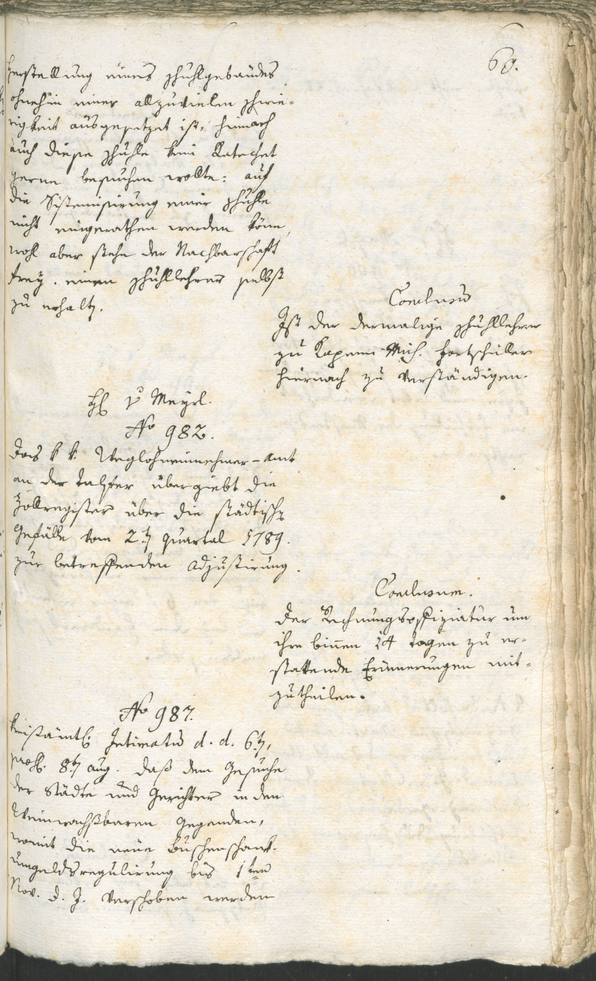 60.
herstellung eines Schuhlgebäudes
ohnehin einer allzuvielen Schwie-
rigkeit ausgesetzet ist, hinnach
auch diese Schuhle kein Katechet
gerne besuchen wollte: auf
die Sistemisirung einer Schuhle
nicht eingerathen werden könne,
wohl aber stehe der Nachbarschaft
frey, einen Schuhllehrer selbst
zu erhalt.
Conclusum
Ist der dermalige Schuhllehrer
zu Mich.
hiernach zu verständigen.
H v Meyrl.
No 982.
Das k k Weglohneinnehmer-Amt
an der Talfer übergiebt die
Zollregister über die städtisch
Gefälle vom 2t quartal 1789.
zur betreffenden Adjustirung.
Conclusum.
Der Rechnungsoffiziatur um
ihre binnen 14 tagen zu er-
stattende Erinnerungen mit-
zutheilen.
No 987.
Kreisämtl. Intimatum d. d. 6t,
8t Aug. daß dem Gesuche
der Städte und Gerichter in den
Weinwachßbaren Gegenden,
womit die neue Buschenschank-
umgeldsregulirung bis 1ten
Nov. d. J. verschoben werden